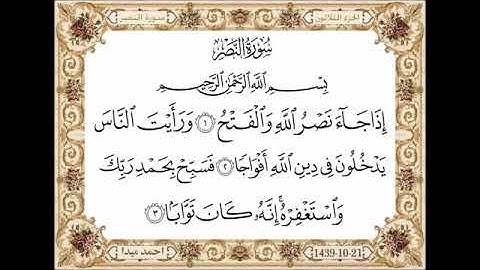 الجزء الثلاثون
سورة النصر
سُورَةُ النَّصْرِ
بِسْمِ اللَّهِ الرَّحْمَٰنِ الرَّحِيمِ
إِذَا جَآءَ نَصْرُ اللَّهِ وَالْفَتْحُ ١ وَرَأَيْتَ النَّاسَ
يَدْخُلُونَ فِى دِينِ اللَّهِ أَفْوَاجًا ٢ فَسَبِّحْ بِحَمْدِ رَبِّكَ
وَاسْتَغْفِرْهُ ۚ إِنَّهُۥ كَانَ تَوَّابًۢا ٣
احمد ميدا
1439-10-21